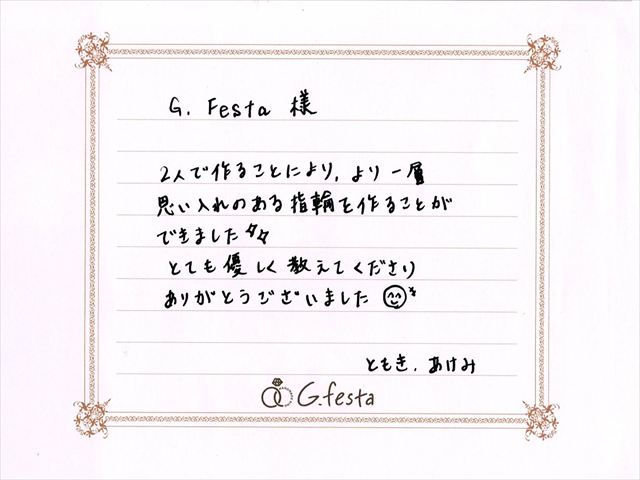 G. Festa 様
2人で作ることにより, より一層
思い入れのある指輪を作ることが
できました
とても優しく教えてくださり
ありがとうございました
ともき. あけみ
G.festa